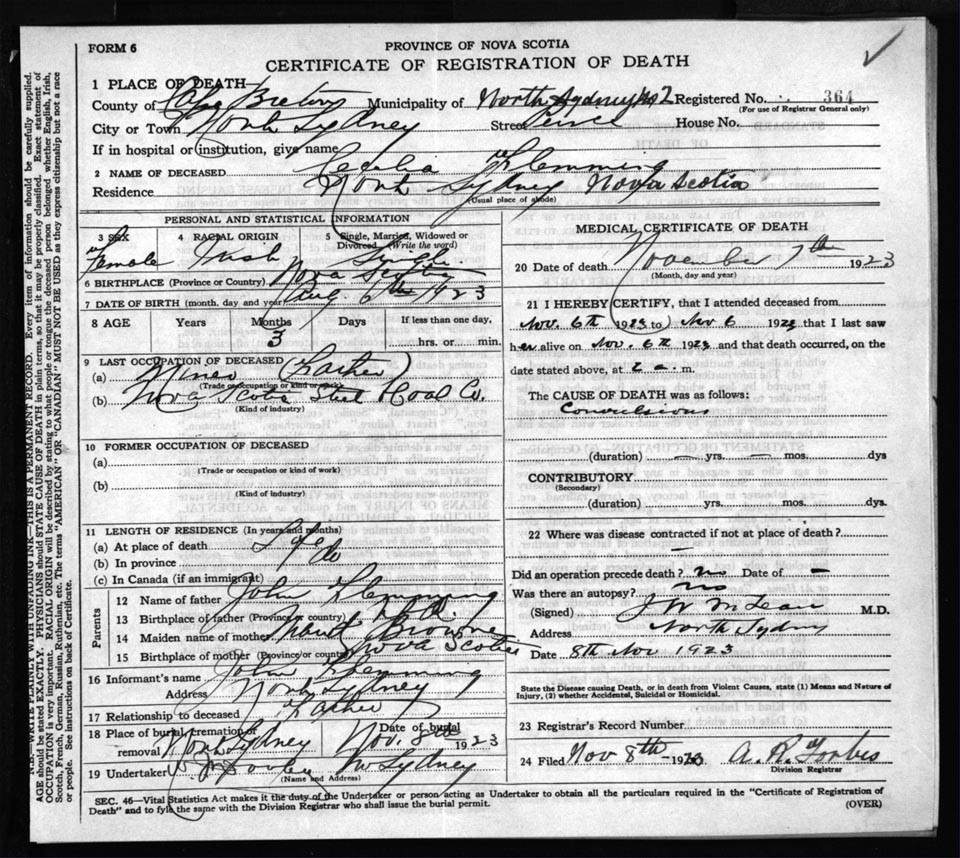 FORM 6
PROVINCE OF NOVA SCOTIA
CERTIFICATE OF REGISTRATION OF DEATH
1 PLACE OF DEATH—
County of Cape Breton Municipality of North Sydney No 2 Registered No. 364
(For use of Registrar General only)
City or Town North Sydney Street Peirce House No.
If in hospital or institution, give name
2 NAME OF DECEASED Cecilia Flemming
Residence North Sydney Nova Scotia
(Usual place of abode)
PERSONAL AND STATISTICAL INFORMATION
3 SEX 4 RACIAL ORIGIN 5 Single, Married, Widowed or Divorced (Write the word)
Female Irish Single
6 BIRTHPLACE (Province or Country) Nova Scotia
7 DATE OF BIRTH (month, day and year) Aug. 6th 1923
8 AGE Years Months Days If less than one day,
3 hrs. or min.
9 LAST OCCUPATION OF DECEASED
(a) Miner (Father)
(Trade or occupation or kind of work)
(b) Nova Scotia Steel & Coal Co.
(Kind of industry)
10 FORMER OCCUPATION OF DECEASED
(a)
(Trade or occupation or kind of work)
(b)
(Kind of industry)
11 LENGTH OF RESIDENCE (In years and months)
(a) At place of death Life
(b) In province do
(c) In Canada (if an immigrant)
Parents
12 Name of father John Flemming
13 Birthplace of father (Province or country) Nfld.
14 Maiden name of mother Browne
15 Birthplace of mother (Province or country) Nova Scotia
16 Informant's name John Flemming
Address North Sydney
17 Relationship to deceased Father
18 Place of burial, cremation or removal Date of burial
North Sydney Nov. 8th 1923
19 Undertaker No Sydney
(Name and Address)
MEDICAL CERTIFICATE OF DEATH
20 Date of death November 7th 1923
(Month, day and year)
21 I HEREBY CERTIFY, that I attended deceased from
Nov. 6th 1923 to Nov 6 1923 that I last saw
her alive on Nov. 6th 1923 and that death occurred, on the
date stated above, at 2 a. m.
The CAUSE OF DEATH was as follows:
Convulsions
(duration) — yrs. — mos. dys
CONTRIBUTORY
(Secondary)
(duration) yrs. mos. dys.
22 Where was disease contracted if not at place of death?
—
Did an operation precede death? no Date of —
Was there an autopsy? no
(Signed) J W McLean M.D.
Address North Sydney
Date 8th Nov 1923
State the Disease causing Death, or in death from Violent Causes, state (1) Means and Nature of Injury, (2) whether Accidental, Suicidal or Homicidal.
23 Registrar's Record Number
24 Filed Nov 8th 1923 A. R. Forbes
Division Registrar
SEC. 46—Vital Statistics Act makes it the duty of the Undertaker or person acting as Undertaker to obtain all the particulars required in the "Certificate of Registration of
Death" and to fyle the same with the Division Registrar who shall issue the burial permit.
(OVER)
N.B.—WRITE PLAINLY WITH UNFADING INK—THIS IS A PERMANENT RECORD. Every item of information should be carefully supplied.
AGE should be stated EXACTLY. PHYSICIANS should STATE CAUSE OF DEATH in plain terms, so that it may be properly classified. Exact statement of
OCCUPATION is very important. RACIAL ORIGIN will be described by stating to what people or tongue the deceased person belonged whether English, Irish,
Scotch, French, German, Russian, Ruthenian, etc. The terms "AMERICAN" OR "CANADIAN" MUST NOT BE USED as they express citizenship but not a race
or people. See instructions on back of Certificate.